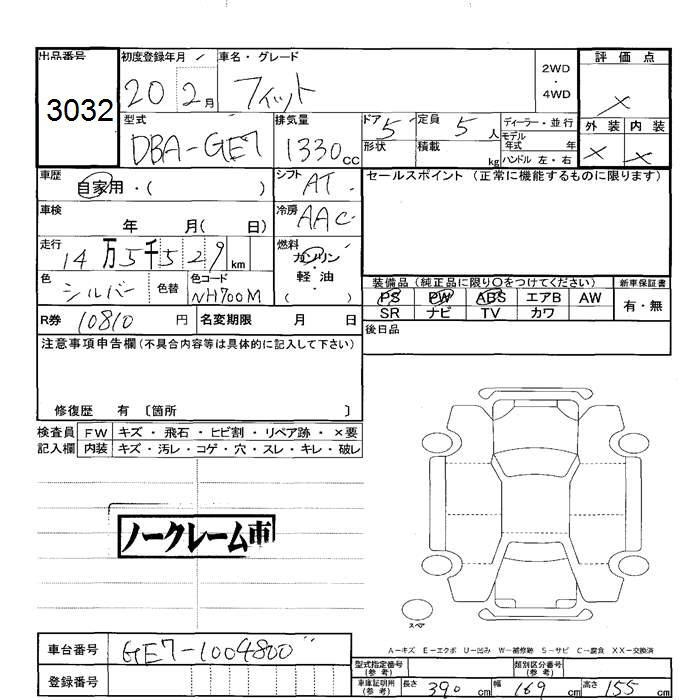 出品番号 初度登録年月 車名・グレード 2WD・4WD 評価点
3032 20 2月 フィット ×
型式 排気量 ドア 定員 ディーラー・並行 外装 内装
DBA-GE7 1330cc 5 5人 モデル年式 年 × ×
形状 積載 kg ハンドル 左・右
車歴 シフト セールスポイント (正常に機能するものに限ります)
自家用・( ) AT
車検 冷房
年 月( 日) AAC
走行 燃料
14万5千529km ガソリン・軽油・( )
色 色替 色コード 装備品 (純正品に限り○をつけてください) 新車保証書
シルバー NH700M PS PW ABS エアB AW 有・無
SR ナビ TV カワ
R券 10810円 名変期限 月 日 後日品
注意事項申告欄(不具合内容等は具体的に記入して下さい)
修復歴 有 〔箇所 〕
検査員 FW キズ・飛石・ヒビ割・リペア跡・×要
記入欄 内装 キズ・汚レ・コゲ・穴・スレ・キレ・破レ
ノークレーム車
スペア
A－キズ E－エクボ U－凹み W－補修跡 S－サビ C－腐食 XX－交換済
車台番号 GE7-1004800
型式指定番号(参考) 類別区分番号(参考)
登録番号 車庫証明用(参考) 長さ 390cm 幅 169cm 高さ 155cm